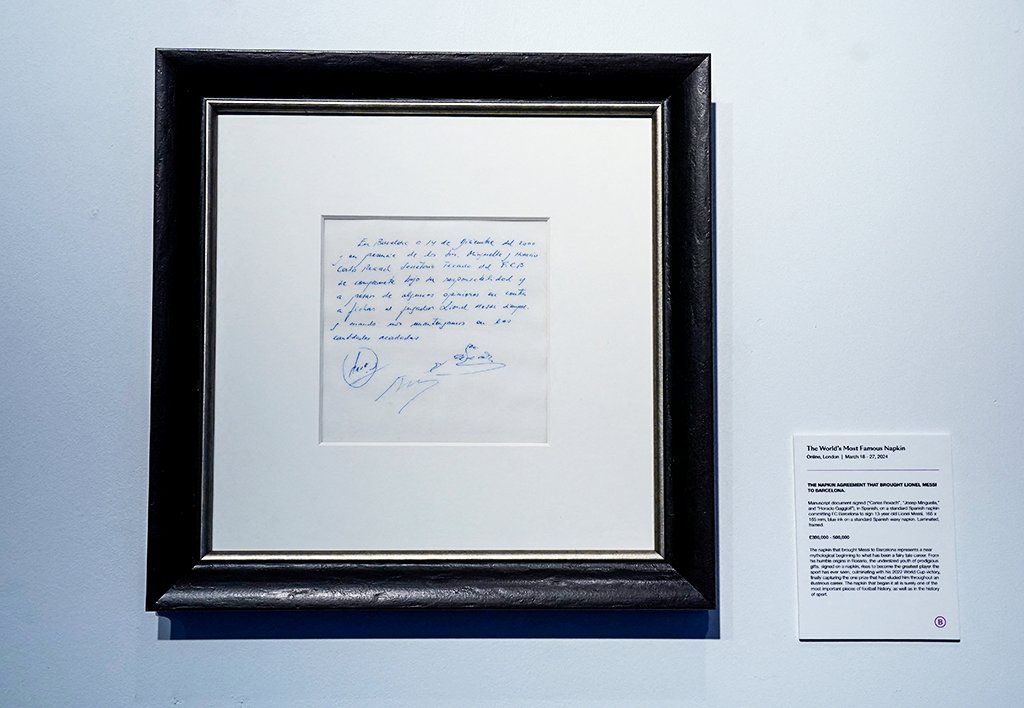 En Barcelona a 14 de diciembre del 2000
y en presencia de los Srs. Minguella y Horacio
Carlos Rexach Secretario Tecnico del F.C.B
se compromete bajo su responsabilidad y
a pesar de algunas opiniones en contra
a fichar al jugador Lionel Messi siempre
y cuando nos mantengamos en las
cantidades acordadas
The World's Most Famous Napkin
Online, London | March 18 - 27, 2024
THE NAPKIN AGREEMENT THAT BROUGHT LIONEL MESSI
TO BARCELONA.
Manuscript document signed ("Carles Rexach", "Josep Minguella,"
and "Horacio Gaggioli"), in Spanish, on a standard Spanish napkin
committing FC Barcelona to sign 13-year old Lionel Messi, 165 x
165 mm, blue ink on a standard Spanish waxy napkin. Laminated,
framed.
£300,000 - 500,000
The napkin that brought Messi to Barcelona represents a near
mythological beginning to what has been a fairy tale career. From
his humble origins in Rosario, the undersized youth of prodigious
gifts, signed on a napkin, rises to become the greatest player the
sport has ever seen, culminating with his 2022 World Cup victory,
finally capturing the one prize that had eluded him throughout an
illustrious career. The napkin that began it all is surely one of the
most important pieces of football history, as well as in the history
of sport.
B